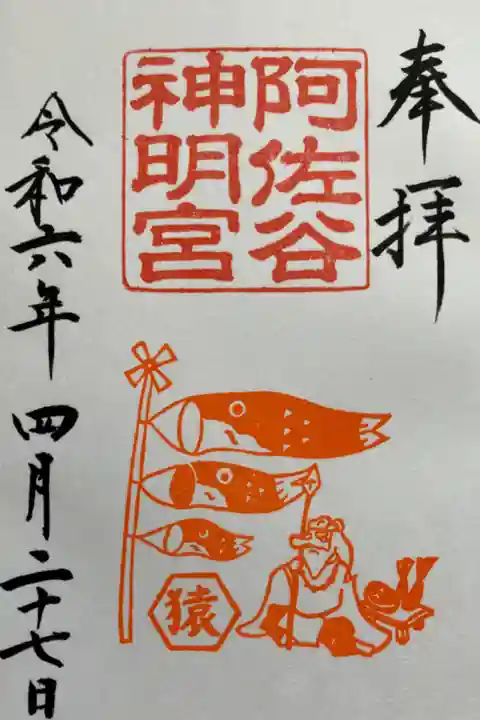 奉拝
阿佐谷
神明宮
猿
令和六年 四月二十七日